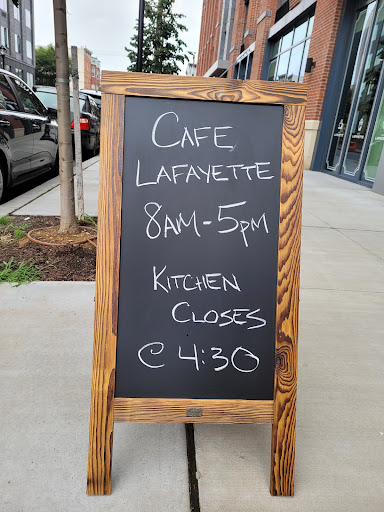 CAFE
LAFAYETTE
8AM-5PM
KITCHEN
CLOSES
@ 4:30